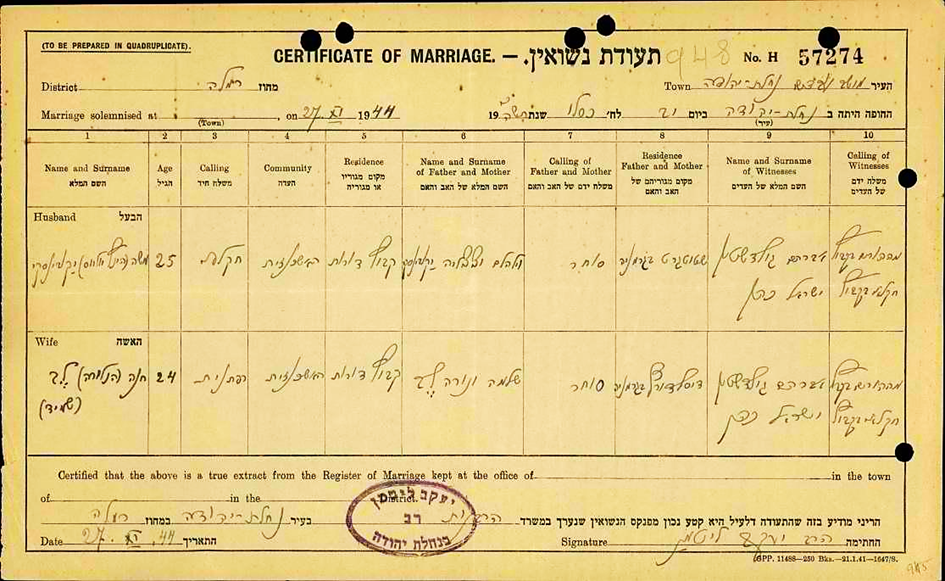 (TO BE PREPARED IN QUADRUPLICATE).
CERTIFICATE OF MARRIAGE. — תעודת נשואין. 948 No. H 57274
District רמלה מחוז Town נחלת-יהודה העיר
Marriage solemnised at (Town) , on 27 XI 1944 19 שנת כסלו לח׳ ביום נחלת-יהודה (עיר) החופה היתה ב
1 2 3 4 5 6 7 8 9 10
Name and Surname Age Calling Community Residence Name and Surname of Father and Mother Calling of Father and Mother Residence Father and Mother Name and Surname of Witnesses Calling of Witnesses
השם המלא הגיל משלח חיד העדה מקום מגוריו או מגוריה השם המלא של האב והאם משלח ידם של האב והאם מקום מגוריהם של האב והאם השם המלא של העדים משלח ידם של העדים
Husband הבעל
משה 25 חקלאי האשכנזית קבוץ דורות סוחר שטוטגרט בגרמניה אברהם גולדשטין
ישראל כהן
Wife האשה
חנה 24 האשכנזית קבוץ דורות שלמה סוחר דיסלדורף בגרמניה אברהם גולדשטין
(שמידט) ישראל כהן
Certified that the above is a true extract from the Register of Marriage kept at the office of in the town
of in the District.
הריני מודיע בזה שהתעודה דלעיל היא קטע נכון מפנקס הנשואין שנערך במשרד הרבנות בעיר נחלת-יהודה במחוז רמלה
יעקב ליטמן
רב
בנחלת יהודה
Date 27. XI. 44. התאריך Signature הרב יעקב ליטמן החתימה
GPP. 11488—250 Bks.—21.1.41—1647/8.
945